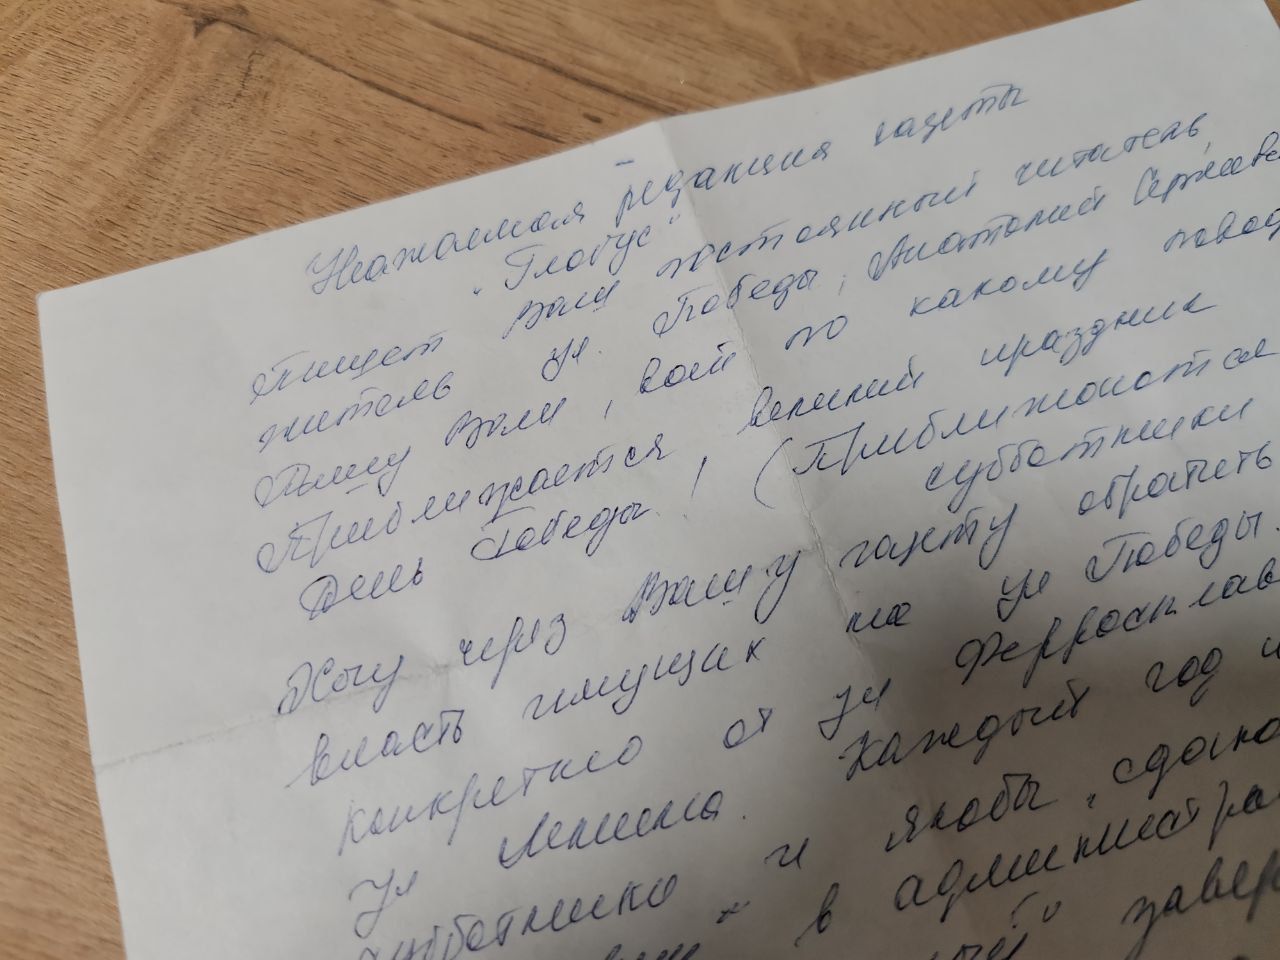 Уважаемая редакция газеты
"Глобус"
Пишет Вам постоянный читатель,
житель ул. Победы, Анатолий
Пишу Вам, вот по какому
Приближается великий праздник
День Победы! (Приближаются
субботники
Хочу через Вашу газету обратить
власть имущих на ул Победы.
конкретно от ул Ферросплав
ул Ленина. Каждый год
субботники и якобы "
" в администра